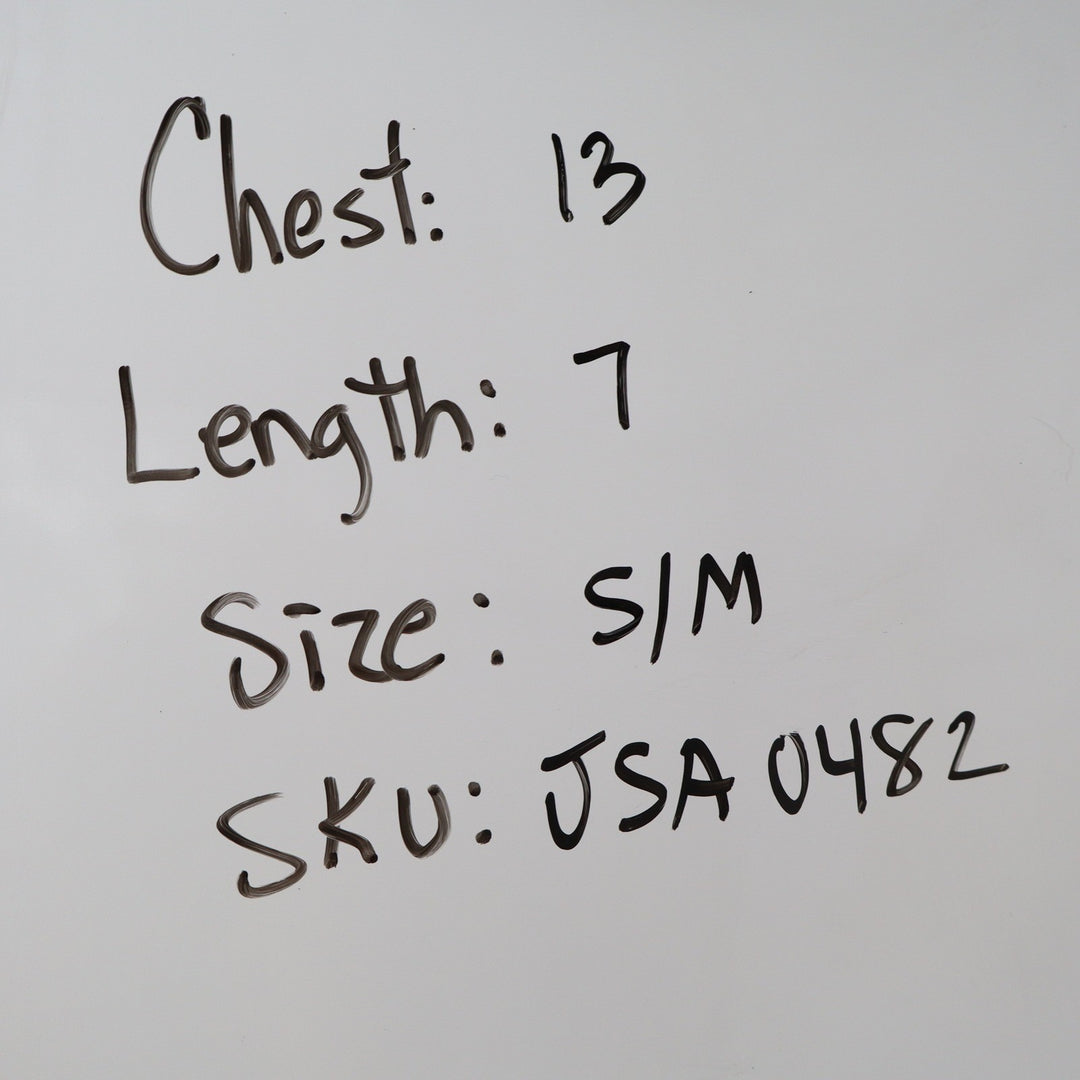 Chest: 13
Length: 7
Size: S/M
SKU: JSA 0482